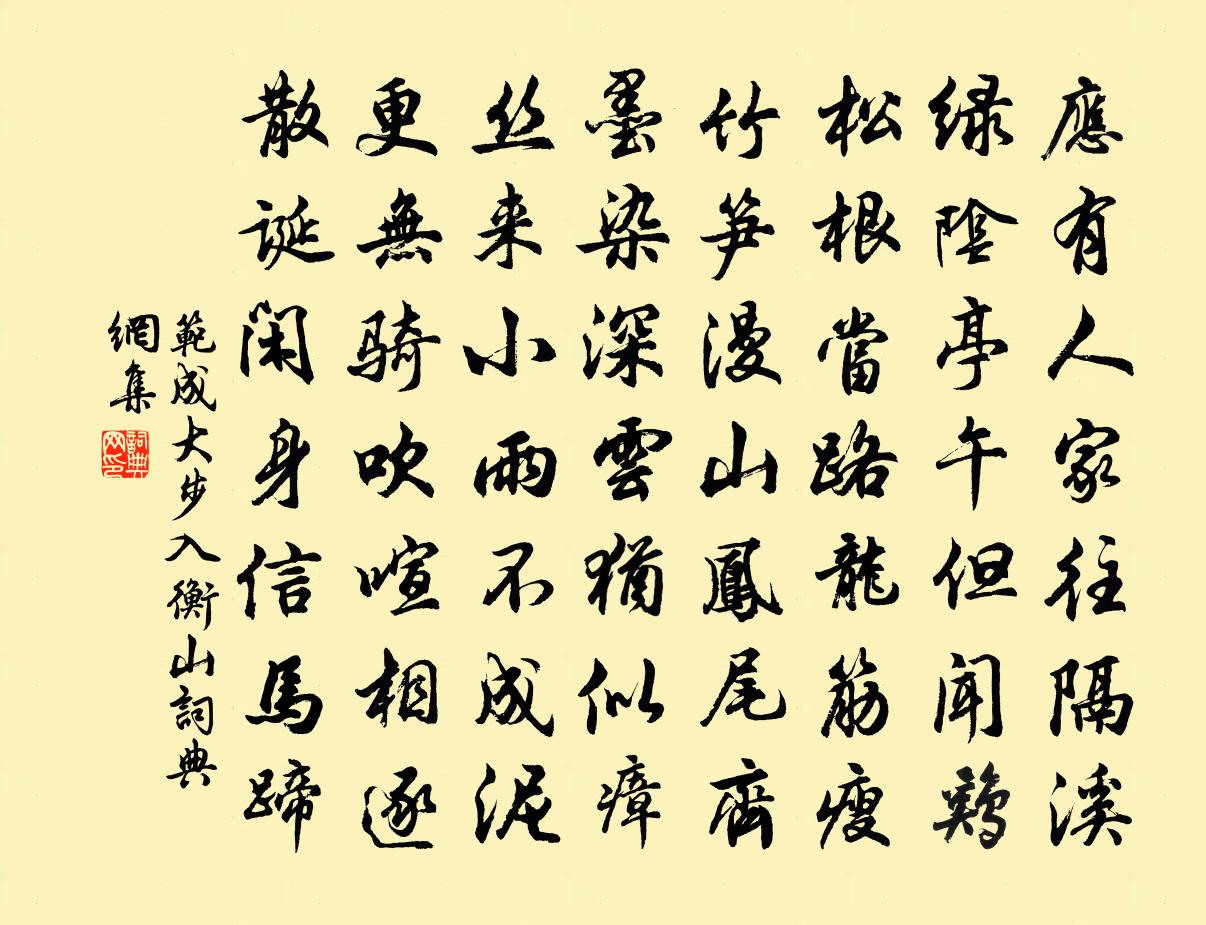 應有人家往隔溪
绿陰亭午但聞鷄
松根當路龍筋瘦
竹笋漫山鳳尾齊
墨染深雲猶似瘴
丝来小雨不成泥
更無骑吹喧相逐
散诞闲身信馬蹄
範成大步入衡山詞典
網集
詞典
网印